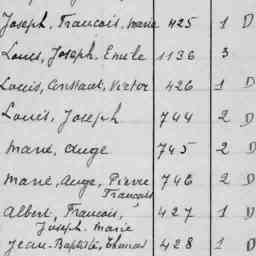 Joseph, Francois, Marie 425 1 D
Louis, Joseph, Emile 1136 3
Louis, Constant, Victor 426 1 D
Louis, Joseph 744 2 D
Marie, Ange 745 2 D
Marie, Ange, Pierre 746 2 D
Francois
Albert, Francois, 427 1 D
Joseph. Marie
Jean-Baptiste, 428 1 D